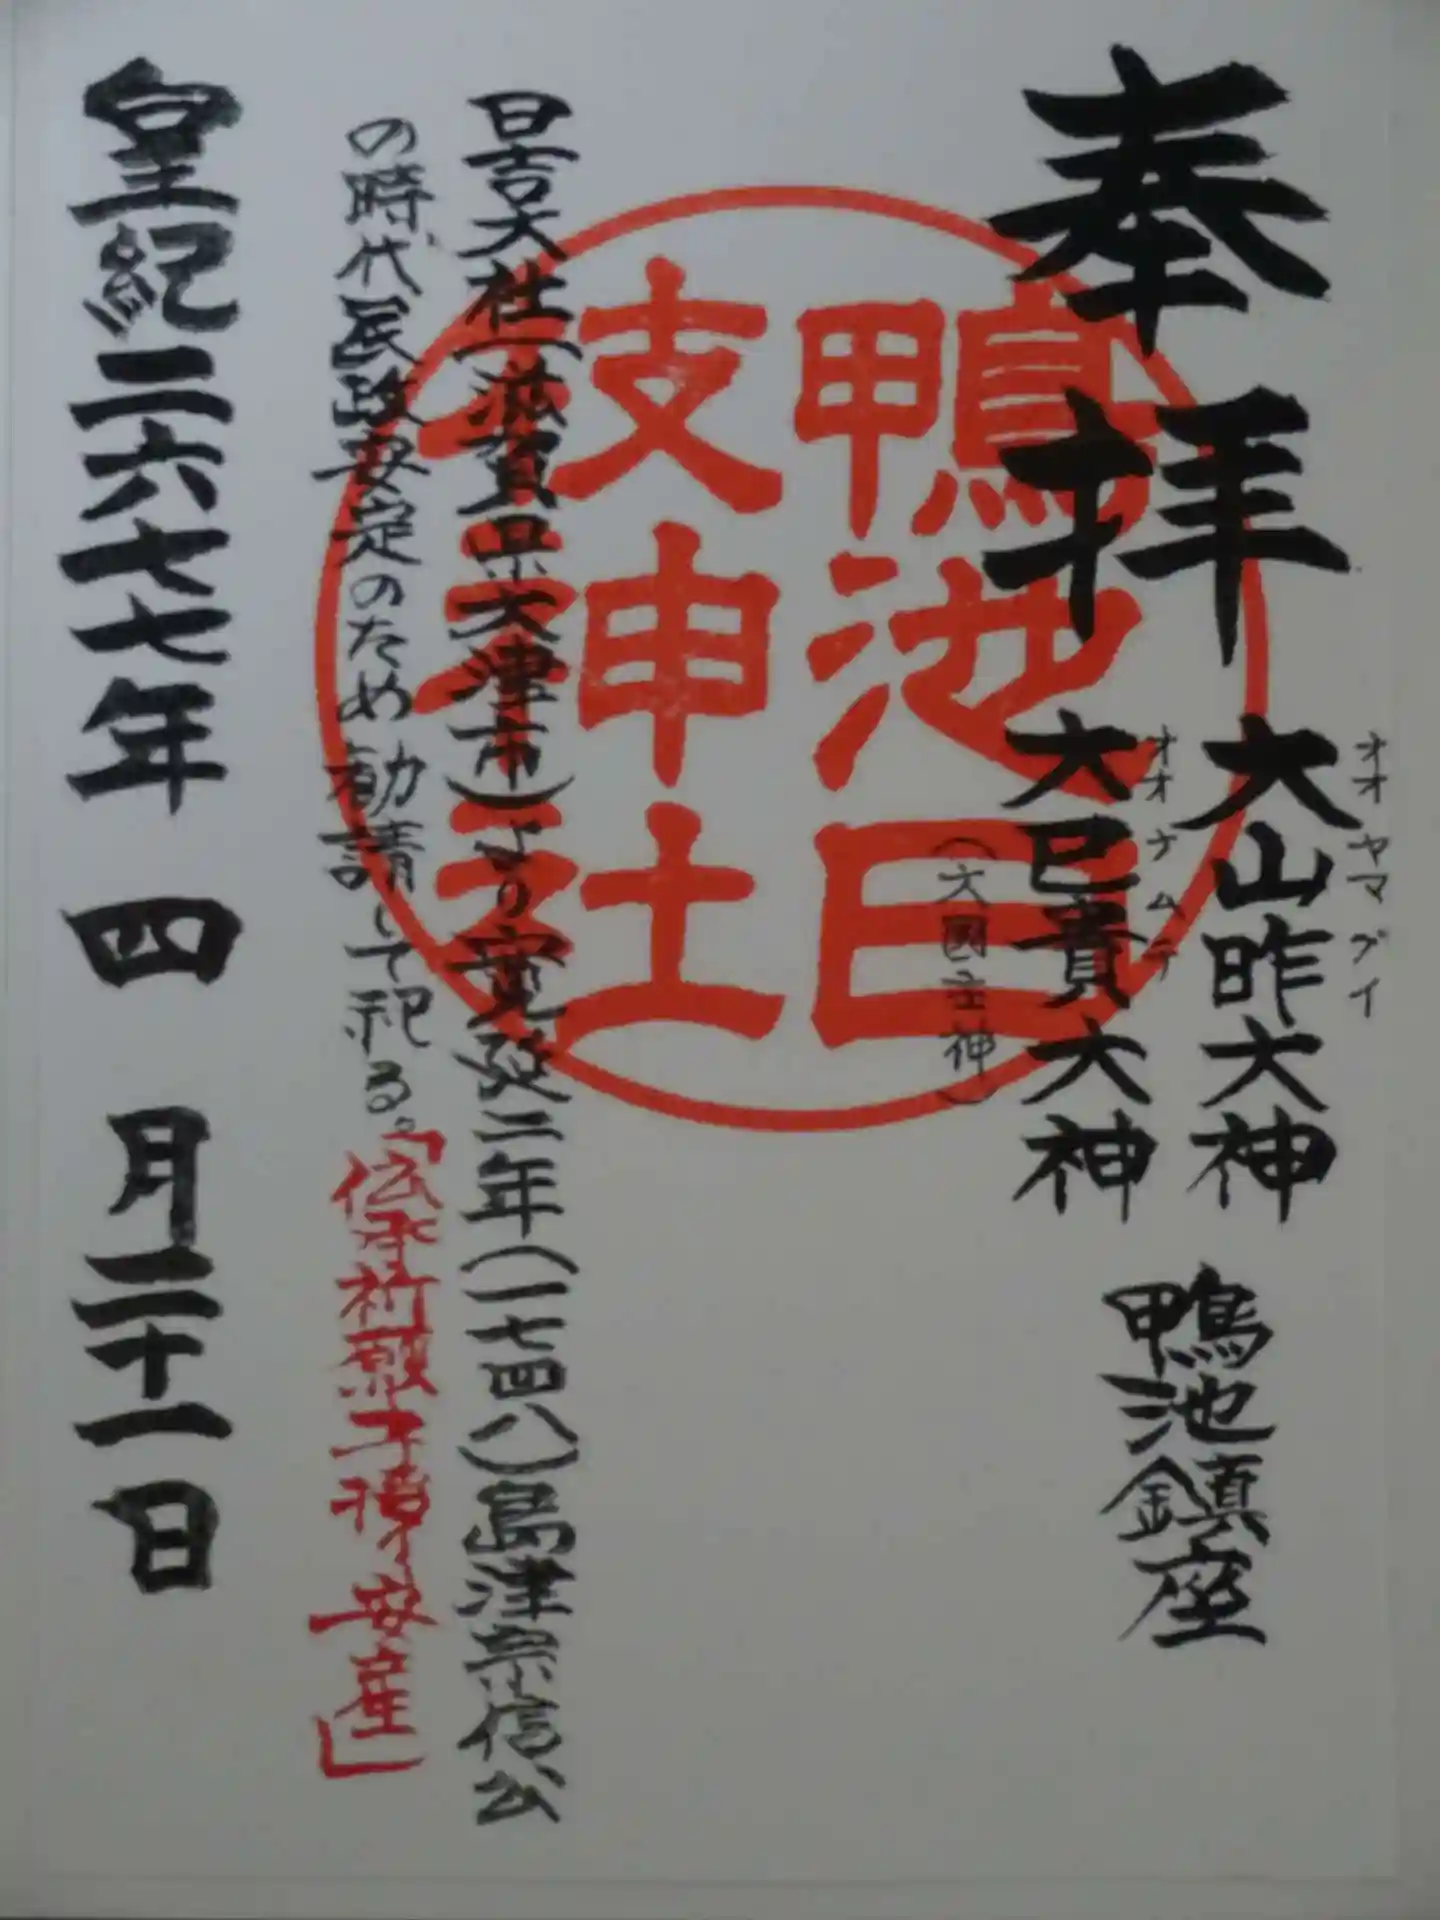 奉拝
オオヤマグイ
大山昨大神
オオナムチ
大巳貴大神
(大國主神)
鴨池鎮座
鴨池日
枝神社
日吉大社(滋賀県大津市)より寛延二年(一七四八)島津宗信公
の時代民政安定のため勧請して祀る。「伝承祈願子授り安産」
皇紀二六七七年 四 月二十一日